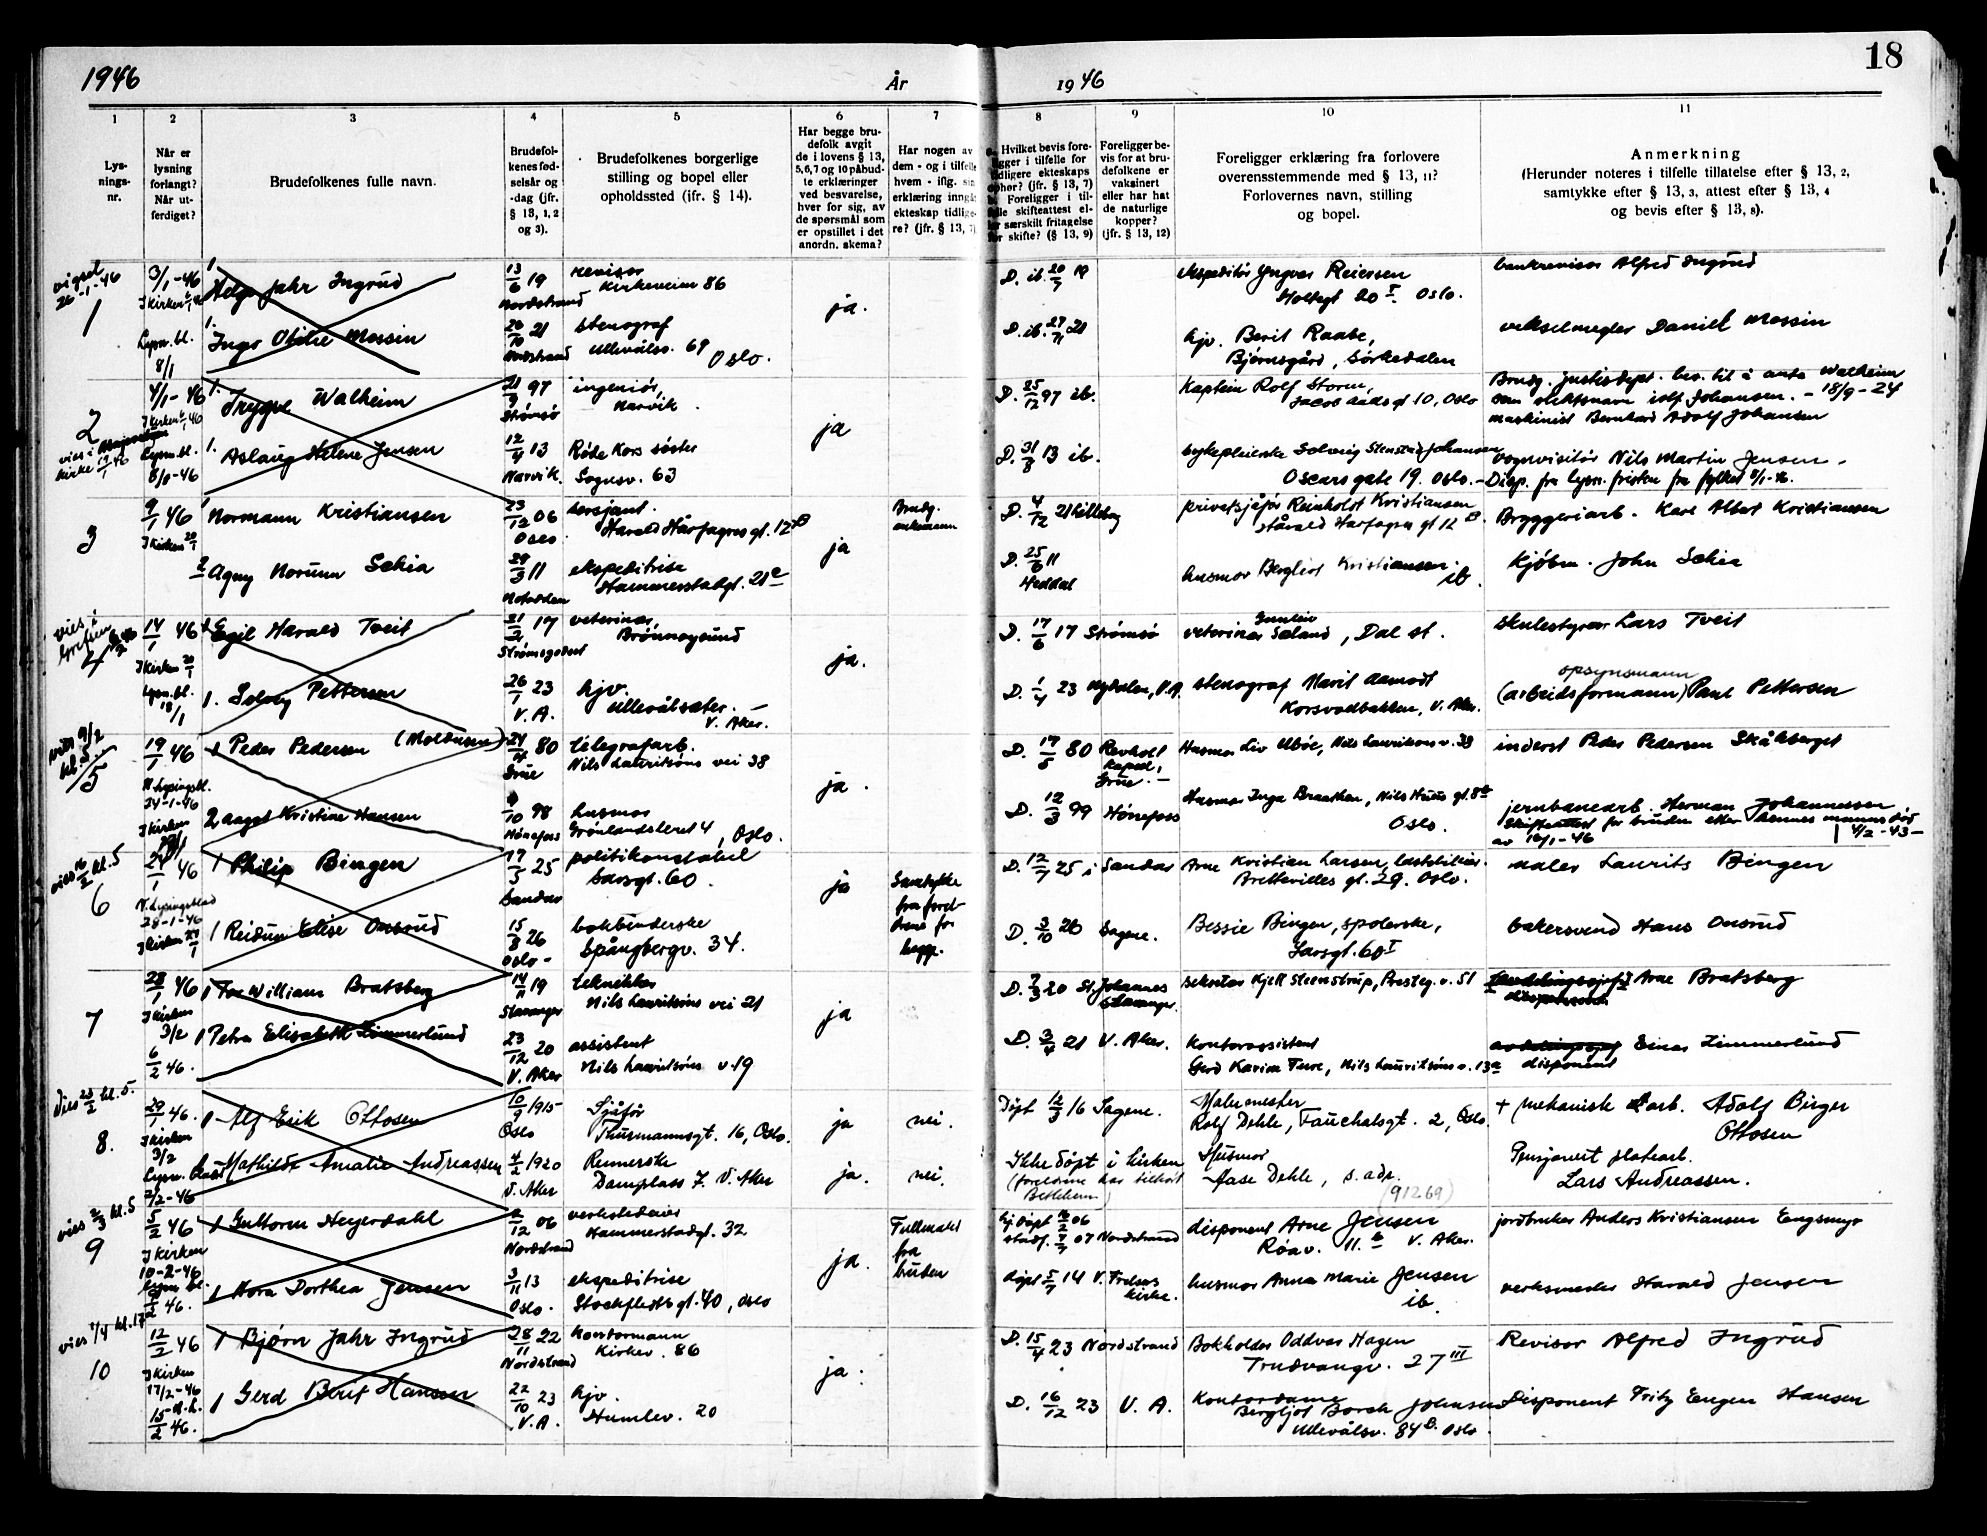 1946
År
1946
18
1
2
3
4
5
6
7
8
9
10
11
Lys-
nings-
nr.
Når er
lysning
forlangt?
Når ut-
ferdiget?
Brudefolkenes fulle navn.
Brudefol-
kenes fød-
selsår og
-dag (jfr.
§ 13, 1, 2
og 3).
Brudefolkenes borgerlige
stilling og bopel eller
opholdssted (ifr. § 14).
Har begge bru-
defolk avgit
de i lovens § 13,
5, 6, 7 og 10 påbud-
te erklæringer
ved besvarelse,
hver for sig, av
de spørsmål som
er opstillet i det
anordn. skema?
Har nogen av
dem - og i tilfelle
hvem - iflg. sin
erklæring inngåt
ekteskap tidlige-
re? (jfr. § 13, 7)
Hvilket bevis fore-
ligger i tilfelle for
tidligere ekteskaps
ophør? (jfr. § 13, 7)
Foreligger i til-
felle skifteattest el-
ler særskilt fritagelse
for skifte? (§ 13, 9)
Foreligger be-
vis for at bru-
defolkene er
vaksinert
eller har hat
de naturlige
kopper?
(jfr. § 13, 12)
Foreligger erklæring fra forlovere
overensstemmende med § 13, 11?
Forlovernes navn, stilling
og bopel.
Anmerkning
(Herunder noteres i tilfelle tillatelse efter § 13, 2,
samtykke efter § 13, 3, attest efter § 13, 4
og bevis efter § 13, 8).
vigsel
26-1-46
1
3/1-46
Lysn. bl.
8/1
Helge Jahr Ingrud
13/6 19
Nordstrand
revisor
Kirkeveien 86
ja.
D. ib. 20/7 19
ekspeditør Yngvar Reiersen
Holtegt 20 I. Oslo.
bankrevisor Alfred Ingrud
Inger Otilie Mossin
21
Nordstrand
stenograf
Ullevålsv. 69
Oslo.
D. ib. 27/11 21
hjv. Berit Raabe,
Bjørnsgård, Sørkedalen
vekselmegler Daniel Mossin
2
4/1-46
Lysn. bl.
Trygve Walheim
97
Strømsø
ingeniør,
Narvik
ja
D. 25/12 97 ib.
Kaptein Rolf Storm,
Jacob Aalls gt 10, Oslo
Brudg. justisdept. bev. til å anta Walheim
som slektsnavn isf. Johansen. - 18/9-24
maskinist Bernhard Adolf Johansen
Aslaug Helene Jensen
12/4 13
Narvik.
Røde Kors søster
Sognsv. 63
D. 31/8 13 ib.
sykepleierske Solveig Stenstad Johansen
Oscars gate 19. Oslo.
Nils Martin Jensen.
Disp. fra lysn. fristen fra fylket
3
9/1 46
Normann Kristiansen
23/12 06
Oslo
Harald Hårfagres gt. 12 B
ja
Brudg.
enkemann
D. 4/12 21
privatsjåfør Reinholt Kristiansen
Harald Hårfagres gt 12 B.
Bryggeriarb. Karl Albert Kristiansen
Agny Norunn Schia
29/3 11
Notodden
ekspeditrise
Hammerstadgt. 21 c
D. 25/6 11
Heddal
husmor Bergliot Kristiansen.
ib.
Kjøbm. John Schia
vies i
Grefsen
4
14/1 46
Lysn. bl.
18/1
Egil Harald Tveit
17
Strømsgodset
veterinær,
Brønnøysund
ja.
D. 17/6 17 Strømsø
veterinær Gunleiv Sæland, Dal st.
skulestyrar Lars Tveit
Solveig Pettersen
26/1 23
V. A.
hjv.
Ullevålsæter.
V. Aker.
D. 1/4 23 Nydalen, V.A.
stenograf Marit Aamodt
Korsvollbakken, V. Aker.
opsynsmann
(arbeidsformann) Paul Pettersen
vies 9/2
kl. 5
5
19/1 46
N. Lysingsbl.
24-1-46
I Kirken
Peder Pedersen (Moldusen)
80
Grue
telegrafarb.
Nils Lauritsøns vei 38
ja.
D. 17/5 80 Revholt
kapel,
Grue.
Husmor Liv Ulbøe, Nils Lauritsøns v. 38
inderst Peder Pedersen Skåkberget
Aagot Kristine Hansen
9/10 98
Hønefoss
husmor
Grønlandsleret 4, Oslo.
D. 12/3 99 Hønefoss
Husmor Inga Braathen, Nils Huus gt. 8 b
Oslo.
jernbanearb. Herman Johannessen
Skifteattest for bruden etter hennes manns død
av 16/1-46 4/2-43
6
24/1 46
N. Lysingsblad
28-1-46
I Kirken
Philip Bingen
17/3 25
Sandar
politikonstabel
Sarsgt. 60.
ja
Samtykke
fra forel-
drene for
begge.
D. 12/7 25 i Sandar
Arne Kristian Larsen, lastebileier.
Brettevilles gt. 29. Oslo.
maler Laurits Bingen
Reidun Elise Onsrud
15/8 26
Oslo
bokbinderske
Spångbergv. 34.
D. 3/10 26 Sagene.
Bessie Bingen, spolerske,
Sarsgt. 60 I
bakersvend Hans Onsrud
7
28/1 46
I Kirken
3/2
6/2 46.
Tor William Bratsberg
19
Stavanger
tekniker
Nils Lauritsøns vei 21
ja
D. 7/3 20 St. Johannes
Stavanger.
sekretær Kjell Steenstrup, Presteg. v. 51
Arne Bratsberg
Petra Elisabeth Zimmerlund
23/12 20
V. Aker
assistent
Nils Lauritsøns v. 19
D. 3/4 21 V. Aker.
Kontorassistent
Gerd Karin Ture, Nils Lauritsøns v. 13 a
Einar Zimmerlund
disponent
Vies 23/2 kl. 5.
8.
29/1 46.
I Kirken
3/2
Lysn. blad
2/2-46
Alf Erik Ottosen
10/9 1915
Oslo
Sjåfør
Thurmannsgt. 16, Oslo.
ja
nei.
Døpt 12/3 16 Sagene.
Malermester
Rolf Dehle, Fauchaldsgt. 2, Oslo.
+ mekanisk arb. Adolf Birger
Ottosen
Mathilde Amalie Andreassen
4/2 1920
V. Aker
Rennerske
Damplass 7. V. Aker
ja.
nei.
Ikke døpt i kirken
(foreldrene har tilhørt
Betlehem)
Husmor
Aase Dehle, s. adr.
(91269)
Pensjonert platearb.
Lars Andreassen.
vies 2/3 kl. 5
9
5/2 46
I Kirken
10-2-46
Lysn. bl.
Guttorm Heyerdahl
2/12 06
Nordstrand
verkstedeier
Hammerstadgt. 32
ja.
Fullmakt
fra
bruden
Nordstrand
disponent Arne Jensen
Røav. 11. b V. Aker.
jordbruker Anders Kristiansen Engsmyr
Nora Dorthea Jensen
3/11 13
Oslo.
ekspeditrise
Stockfleths gt. 40, Oslo
døpt 5/7 14 V. Frelsers
kirke.
husmor Anna Marie Jensen
ib.
verksmester Harald Jensen
10
12/2 46
I Kirken
17/2-46
15/2 46.
Bjørn Jahr Ingrud
28/11 22
Nordstrand
Kontormann
Kirkev. 86
ja.
D. 15/4 23 Nordstrand
Bokholder Oddvar Hagen
Trudvangv. 27 III
Revisor Alfred Ingrud
Gerd Berit Hansen
22/10 23
V. A.
hjv.
Humlev. 20
D. 16/12 23 V. A.
Kontordame
Bergljot Borch Johnsen
Ullevålsv. 84 B. Oslo.
Disponent Fritz Eugen Hansen